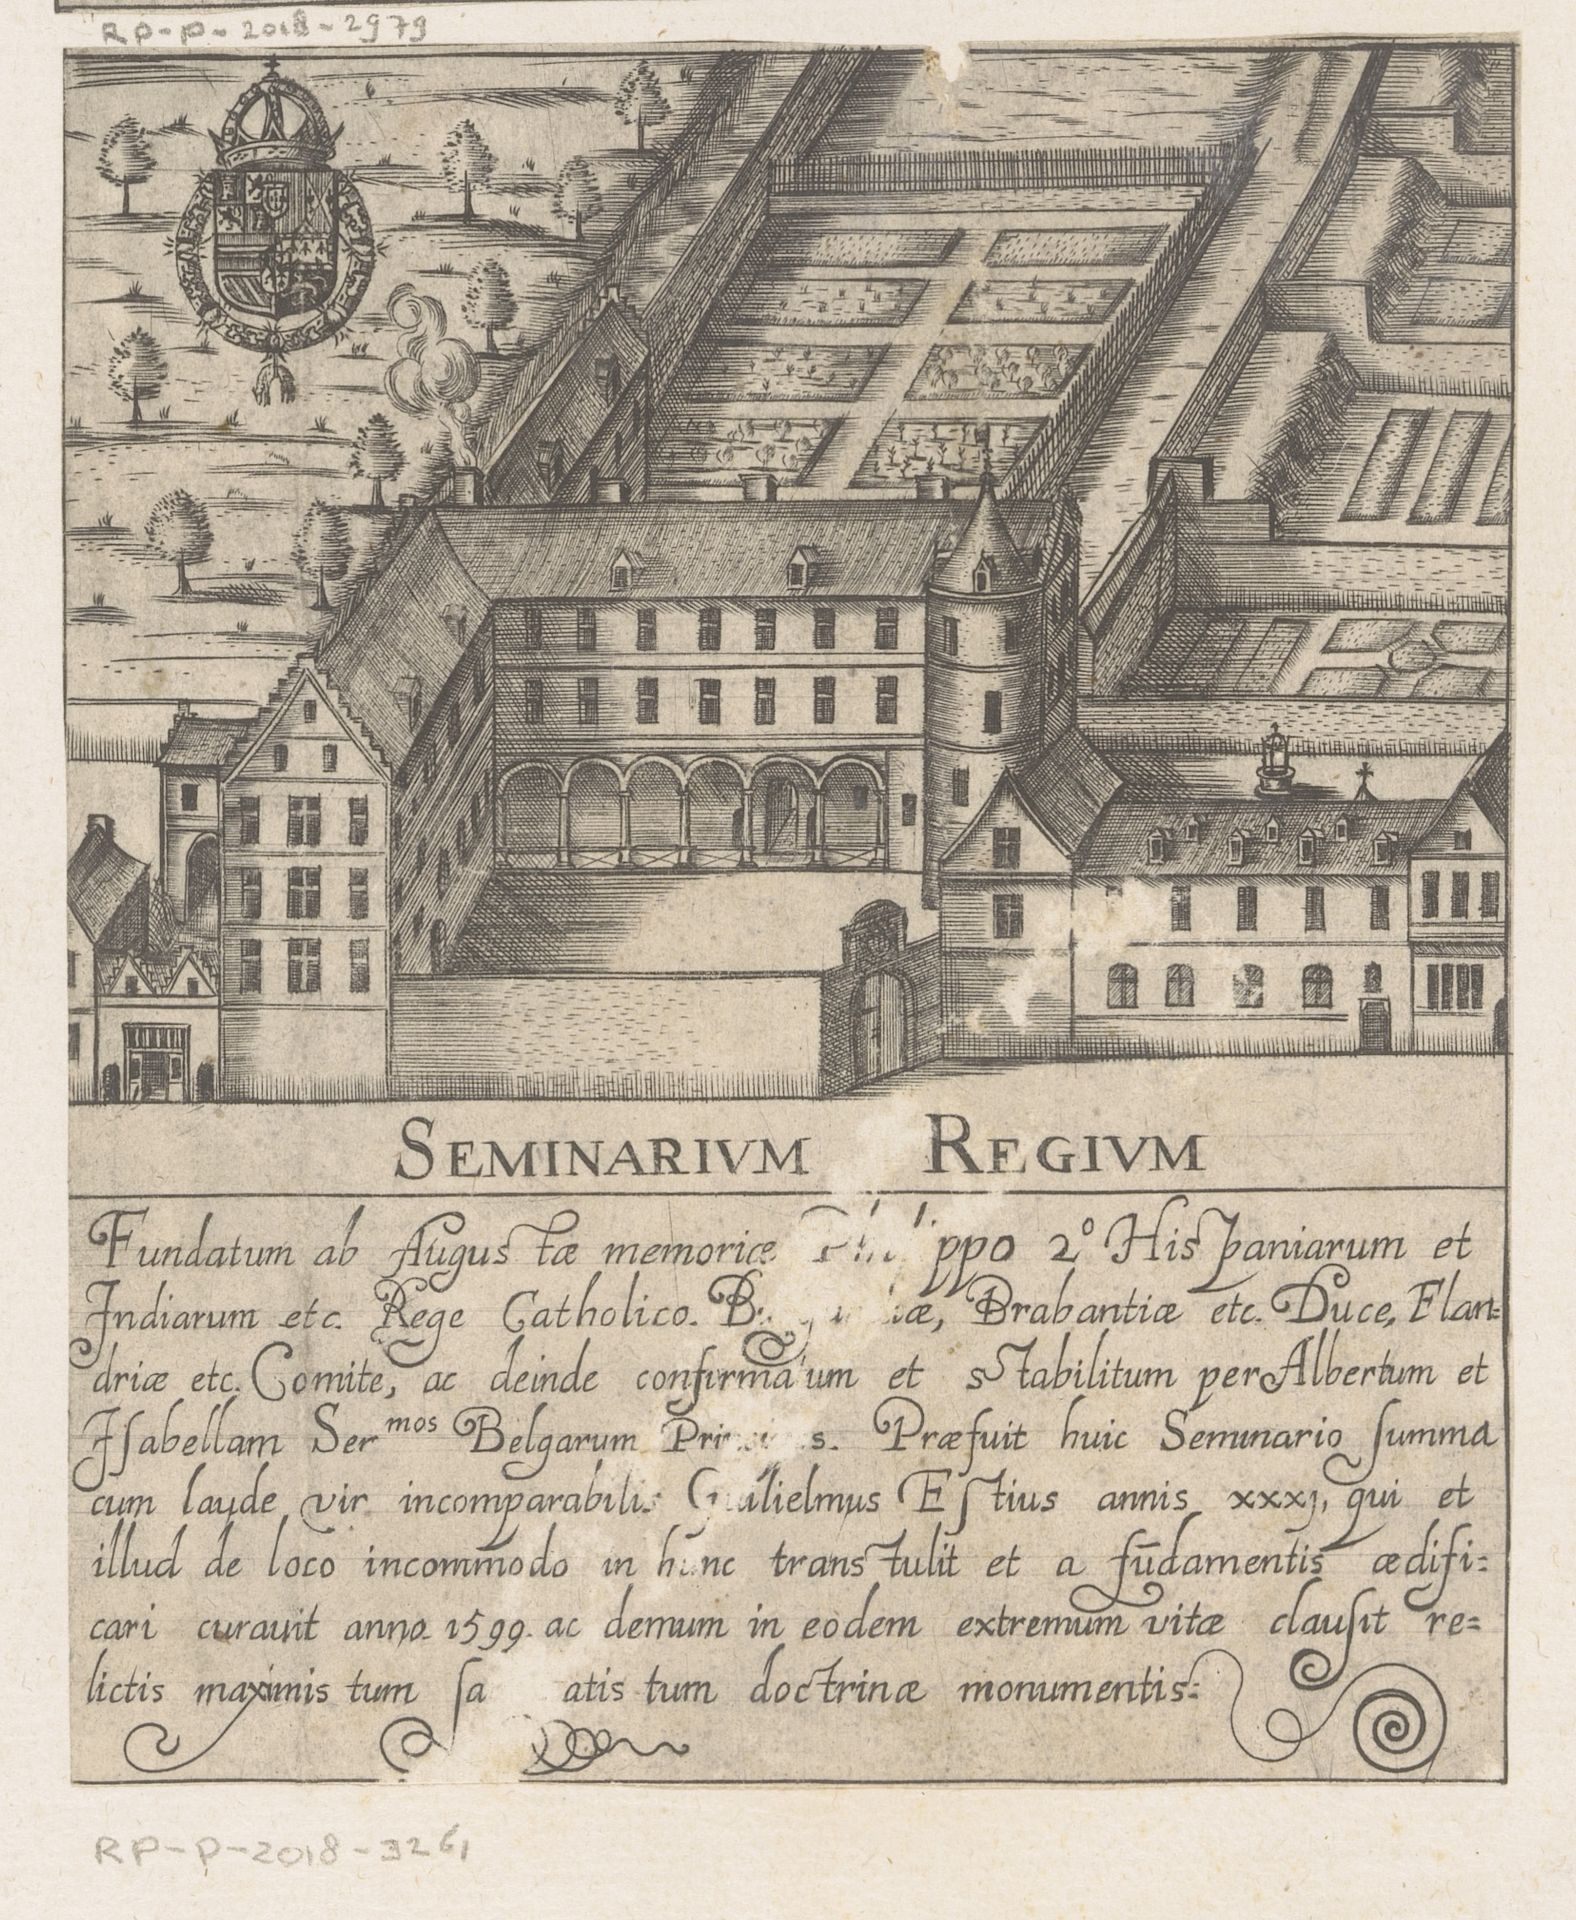 RP-P-2018-2979
SEMINARIVM REGIVM
Fundatum ab Augustæ memoriæ Philippo 2º Hispaniarum et
Indiarum etc. Rege Catholico. Brabantiæ etc. Duce, Flan=
driæ etc. Comite, ac deinde confirmatum et stabilitum per Albertum et
Iſabellam Ser^mos Belgarum Principes. Præfuit huic Seminario ſumma
cum laude vir incomparabilis Guilielmus Eſtius annis xxxj, qui et
illud de loco incommodo in hunc transtulit et a fūdamentis ædifi=
cari curauit anno. 1599. ac demum in eodem extremum vitæ clauſit re=
lictis maximis tum tum doctrinæ monumentis:
RP-P-2018-3261